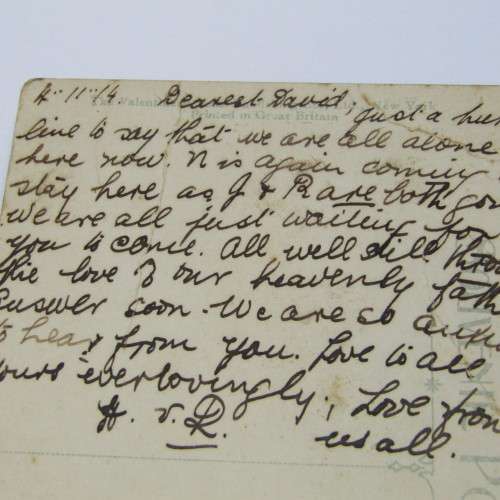 4.11.14 Dearest David, just a hur
The Valentine New York
Printed in Great Britain
line to say that we are all alone
here now. N is again coming
stay here as J & R are both gon
We are all just waiting for
you to come. All well still thro
the love of our heavenly fath
answer soon. We are so anxio
to hear from you. Love to all
yours everlovingly, Love from
A. v. R. us all.